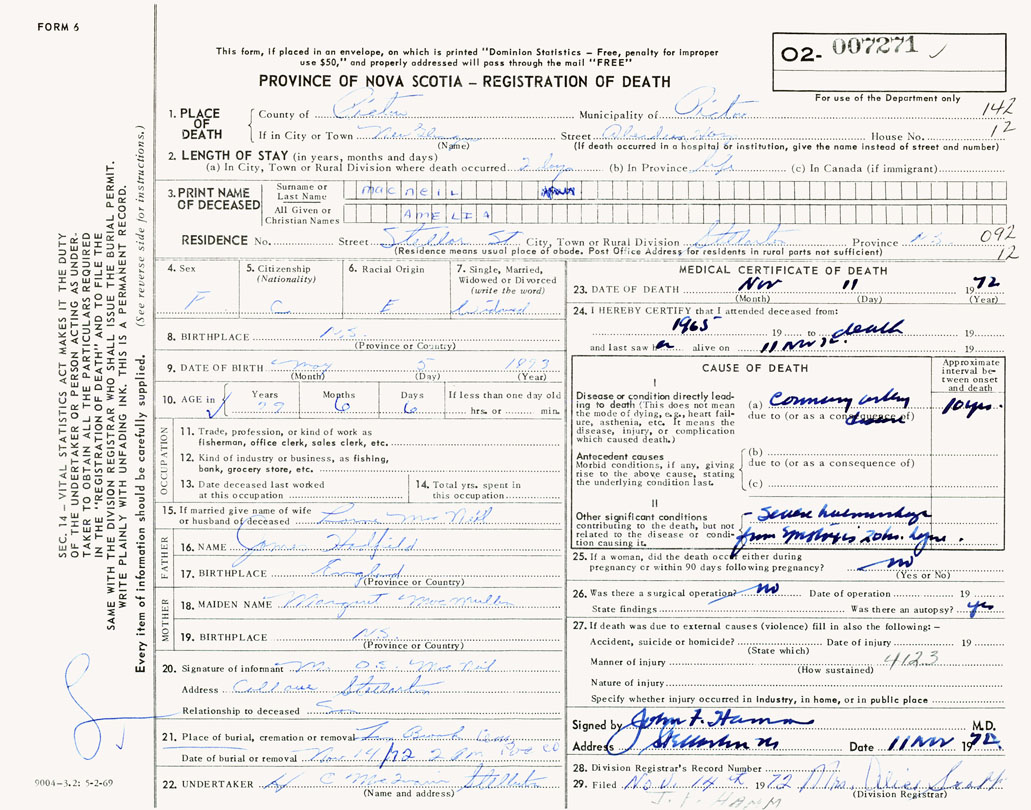 FORM 6
This form, if placed in an envelope, on which is printed "Dominion Statistics – Free, penalty for improper
use $50," and properly addressed will pass through the mail "FREE"
PROVINCE OF NOVA SCOTIA – REGISTRATION OF DEATH
02- 007271
For use of the Department only
1. PLACE OF DEATH
County of Pictou Municipality of Pictou 142
If in City or Town New Glasgow Street Aberdeen Hosp House No. 12
(Name) (If death occurred in a hospital or institution, give the name instead of street and number)
2. LENGTH OF STAY (in years, months and days)
(a) In City, Town or Rural Division where death occurred 2 days (b) In Province life (c) In Canada (if immigrant)
3. PRINT NAME OF DECEASED
Surname or Last Name mac neil
All Given or Christian Names AMELIA
RESIDENCE No. Street Stellar St City, Town or Rural Division Stellarton Province N.S. 092
(Residence means usual place of abode. Post Office Address for residents in rural parts not sufficient) 12
4. Sex F
5. Citizenship (Nationality) C
6. Racial Origin E
7. Single, Married, Widowed or Divorced (write the word) Widowed
8. BIRTHPLACE N.S.
(Province or Country)
9. DATE OF BIRTH may 5 1893
(Month) (Day) (Year)
10. AGE in Years Months 6 Days 6 If less than one day old hrs. or min.
OCCUPATION
11. Trade, profession, or kind of work as
fisherman, office clerk, sales clerk, etc.
12. Kind of industry or business, as fishing,
bank, grocery store, etc.
13. Date deceased last worked at this occupation
14. Total yrs. spent in this occupation
15. If married give name of wife
or husband of deceased Mc Neil
FATHER
16. NAME James Hadfield
17. BIRTHPLACE England
(Province or Country)
MOTHER
18. MAIDEN NAME Margaret MacMullin
19. BIRTHPLACE N.S.
(Province or Country)
20. Signature of informant O.S. Mac Neil
Address Stellarton
Relationship to deceased Son
21. Place of burial, cremation or removal Brook
Date of burial or removal Nov 14/72 2 pm
22. UNDERTAKER Stellarton
(Name and address)
MEDICAL CERTIFICATE OF DEATH
23. DATE OF DEATH Nov 11 1972
(Month) (Day) (Year)
24. I HEREBY CERTIFY that I attended deceased from:
1965 19 to death 19
and last saw her alive on 11 Nov 72 19
CAUSE OF DEATH
Approximate interval between onset and death
I
Disease or condition directly leading to death (This does not mean the mode of dying, e.g., heart failure, asthenia, etc. It means the disease, injury, or complication which caused death.)
(a) Coronary artery disease 10 yrs.
due to (or as a consequence of)
Antecedent causes
Morbid conditions, if any, giving rise to the above cause, stating the underlying condition last.
(b)
due to (or as a consequence of)
(c)
II
Other significant conditions contributing to the death, but not related to the disease or condition causing it.
- Severe haemorrhage
from
25. If a woman, did the death occur either during
pregnancy or within 90 days following pregnancy? no
(Yes or No)
26. Was there a surgical operation? no Date of operation 19
State findings Was there an autopsy? yes
27. If death was due to external causes (violence) fill in also the following: –
Accident, suicide or homicide? Date of injury 19
(State which)
Manner of injury 4123
(How sustained)
Nature of injury
Specify whether injury occurred in Industry, in home, or in public place
Signed by John F. Hamm M.D.
Address Stellarton NS Date 11 Nov 1972
28. Division Registrar's Record Number
29. Filed Nov. 14th 1972 Mrs. Alice
(Division Registrar)
J. F. HAMM
SEC. 14 – VITAL STATISTICS ACT MAKES IT THE DUTY
OF THE UNDERTAKER OR PERSON ACTING AS UNDER-
TAKER TO OBTAIN ALL THE PARTICULARS REQUIRED
IN THE "REGISTRATION OF DEATH" AND TO FILE THE
SAME WITH THE DIVISION REGISTRAR WHO SHALL ISSUE THE BURIAL PERMIT.
WRITE PLAINLY WITH UNFADING INK. THIS IS A PERMANENT RECORD.
Every item of information should be carefully supplied. (See reverse side for instructions.)
9004-3.2: 5-2-69